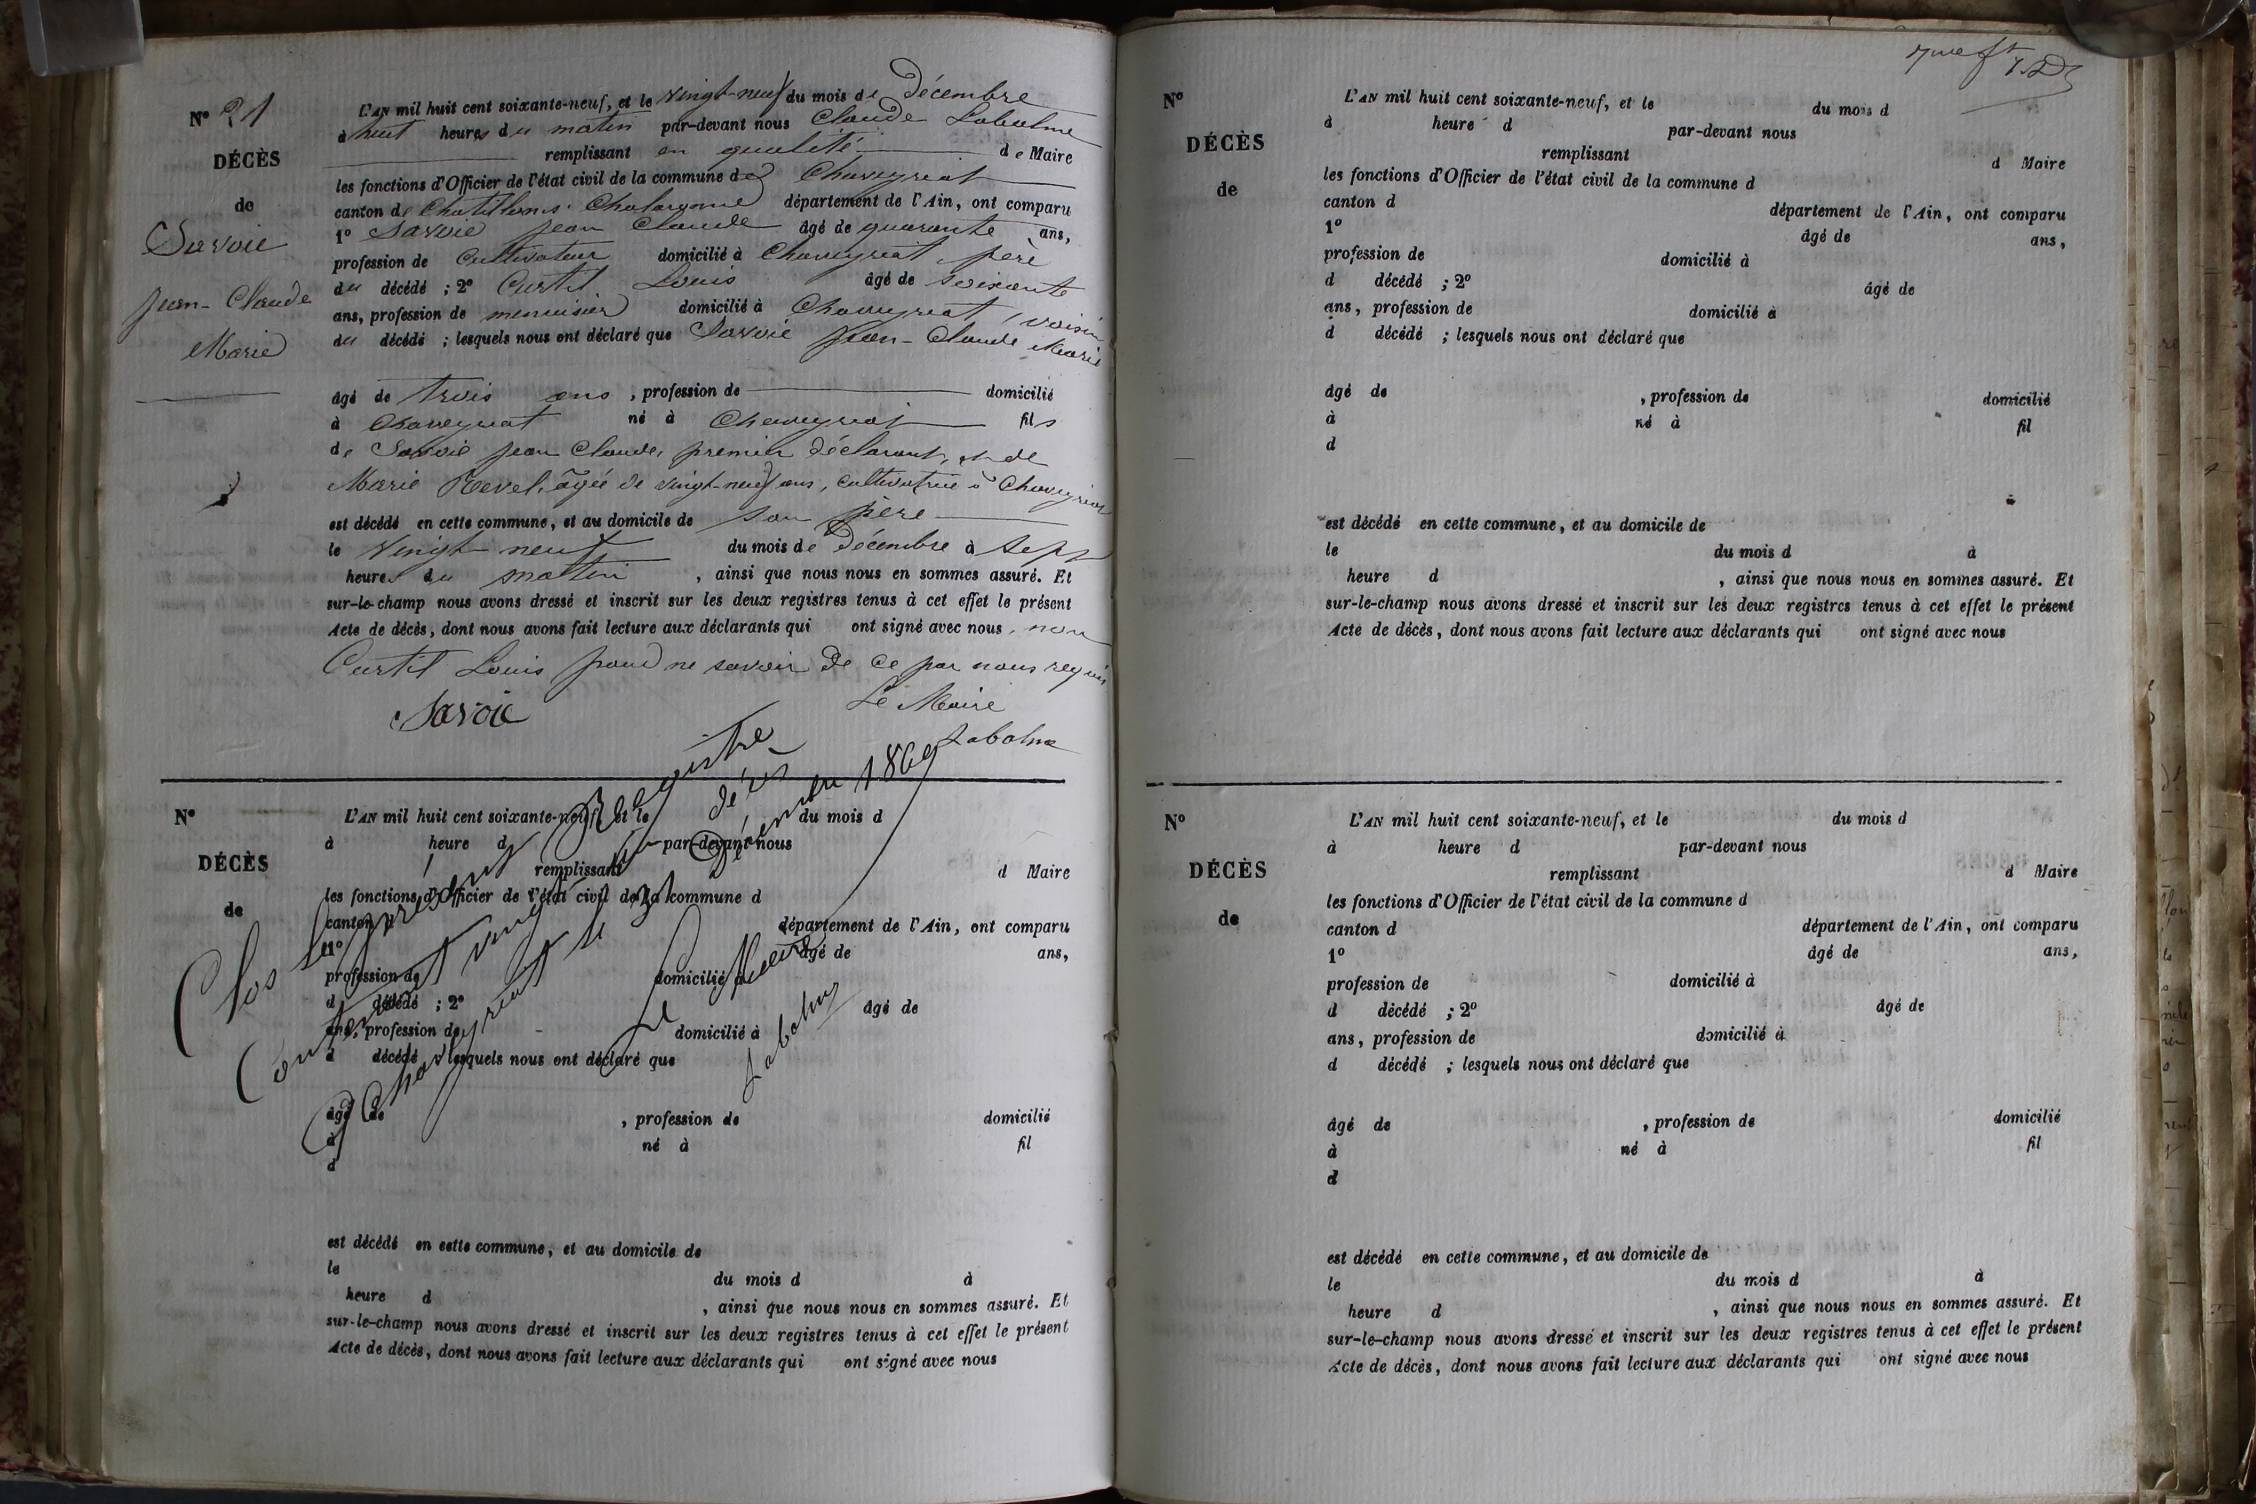 N° 21
DÉCÈS
de
Savoie
Jean-Claude
Marie
L'AN mil huit cent soixante-neuf, et le vingt-neuf du mois de Décembre
à huit heures du matin par-devant nous Claude Labalme
remplissant en qualité de Maire
les fonctions d'Officier de l'état civil de la commune de Chaveyriat
canton de Chatillon s. Chalaronne département de l'Ain, ont comparu
1° Savoie Jean Claude âgé de quarante ans,
profession de Cultivateur domicilié à Chaveyriat, père
du décédé ; 2° Curtil Louis âgé de soixante
ans, profession de menuisier domicilié à Chaveyriat, voisin
du décédé ; lesquels nous ont déclaré que Savoie Jean-Claude Marie
âgé de trois ans , profession de domicilié
à Chaveyriat né à Chaveyriat fils
de Savoie Jean Claude, premier déclarant, et de
Marie Revel, âgée de vingt-neuf ans, cultivatrice à Chaveyriat
est décédé en cette commune, et au domicile de son père
le vingt-neuf du mois de Décembre à sept
heures du matin , ainsi que nous nous en sommes assuré. Et
sur-le-champ nous avons dressé et inscrit sur les deux registres tenus à cet effet le présent
Acte de décès, dont nous avons fait lecture aux déclarants qui ont signé avec nous, non
Curtil Louis pour ne savoir de ce par nous requis
Le Maire
Savoie
Labalme
N°
DÉCÈS
de
L'AN mil huit cent soixante-neuf, et le du mois d
à heure d par-devant nous
remplissant d Maire
les fonctions d'Officier de l'état civil de la commune d
canton d département de l'Ain, ont comparu
1° âgé de ans,
profession de domicilié à
d décédé ; 2° âgé de
ans, profession de domicilié à
d décédé ; lesquels nous ont déclaré que
âgé de , profession de domicilié
à né à fil
d
est décédé en cette commune, et au domicile de
le du mois d à
heure d , ainsi que nous nous en sommes assuré. Et
sur-le-champ nous avons dressé et inscrit sur les deux registres tenus à cet effet le présent
Acte de décès, dont nous avons fait lecture aux déclarants qui ont signé avec nous
Clos le présent Registre
Contenant vingt un décès
à Chaveyriat le 31 Décembre 1869
Le Maire
Labalme
N°
DÉCÈS
de
L'AN mil huit cent soixante-neuf, et le du mois d
à heure d par-devant nous
remplissant d Maire
les fonctions d'Officier de l'état civil de la commune d
canton d département de l'Ain, ont comparu
1° âgé de ans,
profession de domicilié à
d décédé ; 2° âgé de
ans, profession de domicilié à
d décédé ; lesquels nous ont déclaré que
âgé de , profession de domicilié
à né à fil
d
est décédé en cette commune, et au domicile de
le du mois d à
heure d , ainsi que nous nous en sommes assuré. Et
sur-le-champ nous avons dressé et inscrit sur les deux registres tenus à cet effet le présent
Acte de décès, dont nous avons fait lecture aux déclarants qui ont signé avec nous
N°
DÉCÈS
de
L'AN mil huit cent soixante-neuf, et le du mois d
à heure d par-devant nous
remplissant d Maire
les fonctions d'Officier de l'état civil de la commune d
canton d département de l'Ain, ont comparu
1° âgé de ans,
profession de domicilié à
d décédé ; 2° âgé de
ans, profession de domicilié à
d décédé ; lesquels nous ont déclaré que
âgé de , profession de domicilié
à né à fil
d
est décédé en cette commune, et au domicile de
le du mois d à
heure d , ainsi que nous nous en sommes assuré. Et
sur-le-champ nous avons dressé et inscrit sur les deux registres tenus à cet effet le présent
Acte de décès, dont nous avons fait lecture aux déclarants qui ont signé avec nous